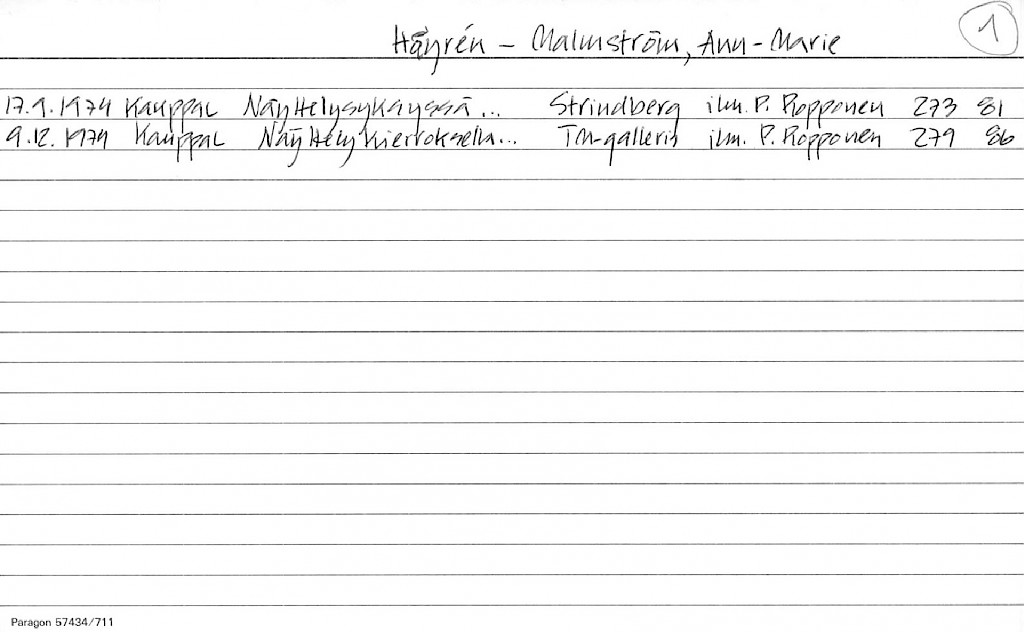 1
Häyrén - Malmström, Ann-Marie
17.9.1974 Kauppal Näyttelysykäyssä... Strindberg ilm. P. Ropponen 273 81
9.12.1974 Kauppal Näyttelykierroksella... TM-galleria ilm. P. Ropponen 279 86
Paragon 57434/711